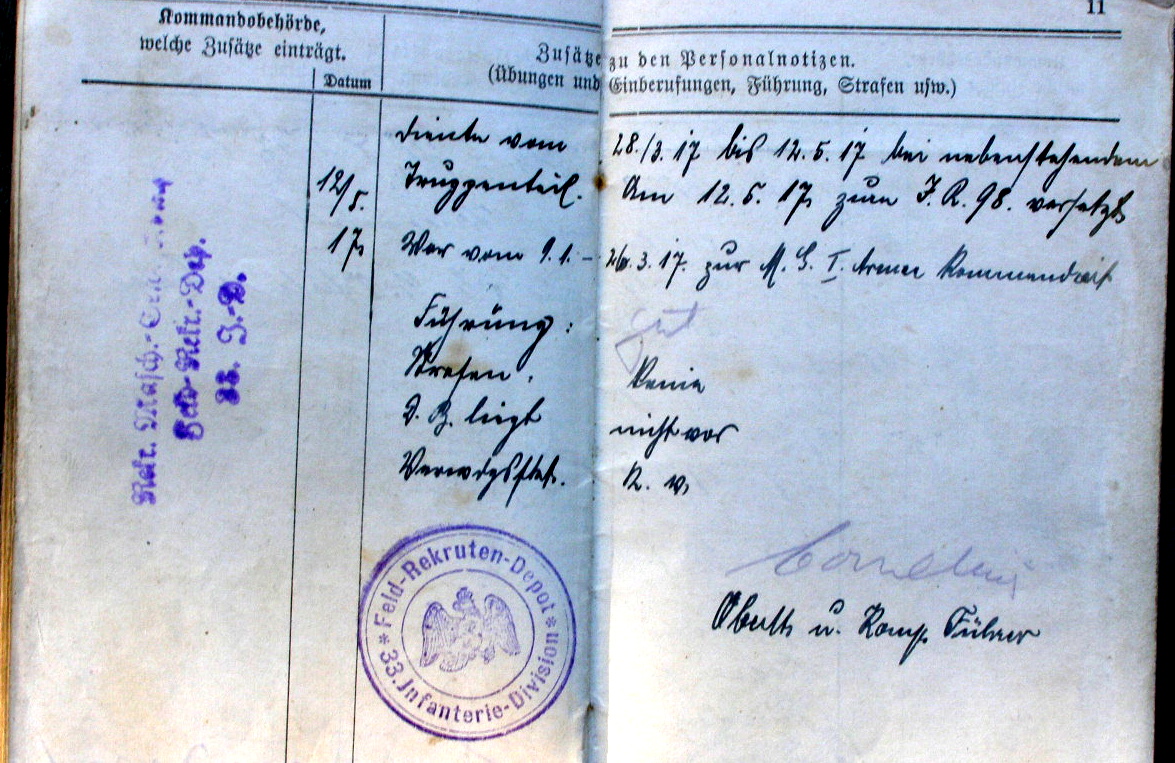 11
Kommandobehörde,
welche Zusätze einträgt.
Datum
Zusätze zu den Personalnotizen.
(Übungen und Einberufungen, Führung, Strafen usw.)
diente vom 28./3. 17 bis 12. 5. 17 bei nebenstehendem
12/5. Truppenteil. Am 12. 5. 17. zum J. R. 98. versetzt
17. War vom 9. 1. – 26. 3. 17. zur M. G. I. Armee kommandiert
Führung: gut
Strafen. Keine
D. B. liegt nicht vor
K. v.
Oberlt. u. Komp. Führer
Rekr. Masch.-
Feld-Rekr.-Dep.
33. J.-D.
* Feld-Rekruten-Depot *
33. Infanterie-Division